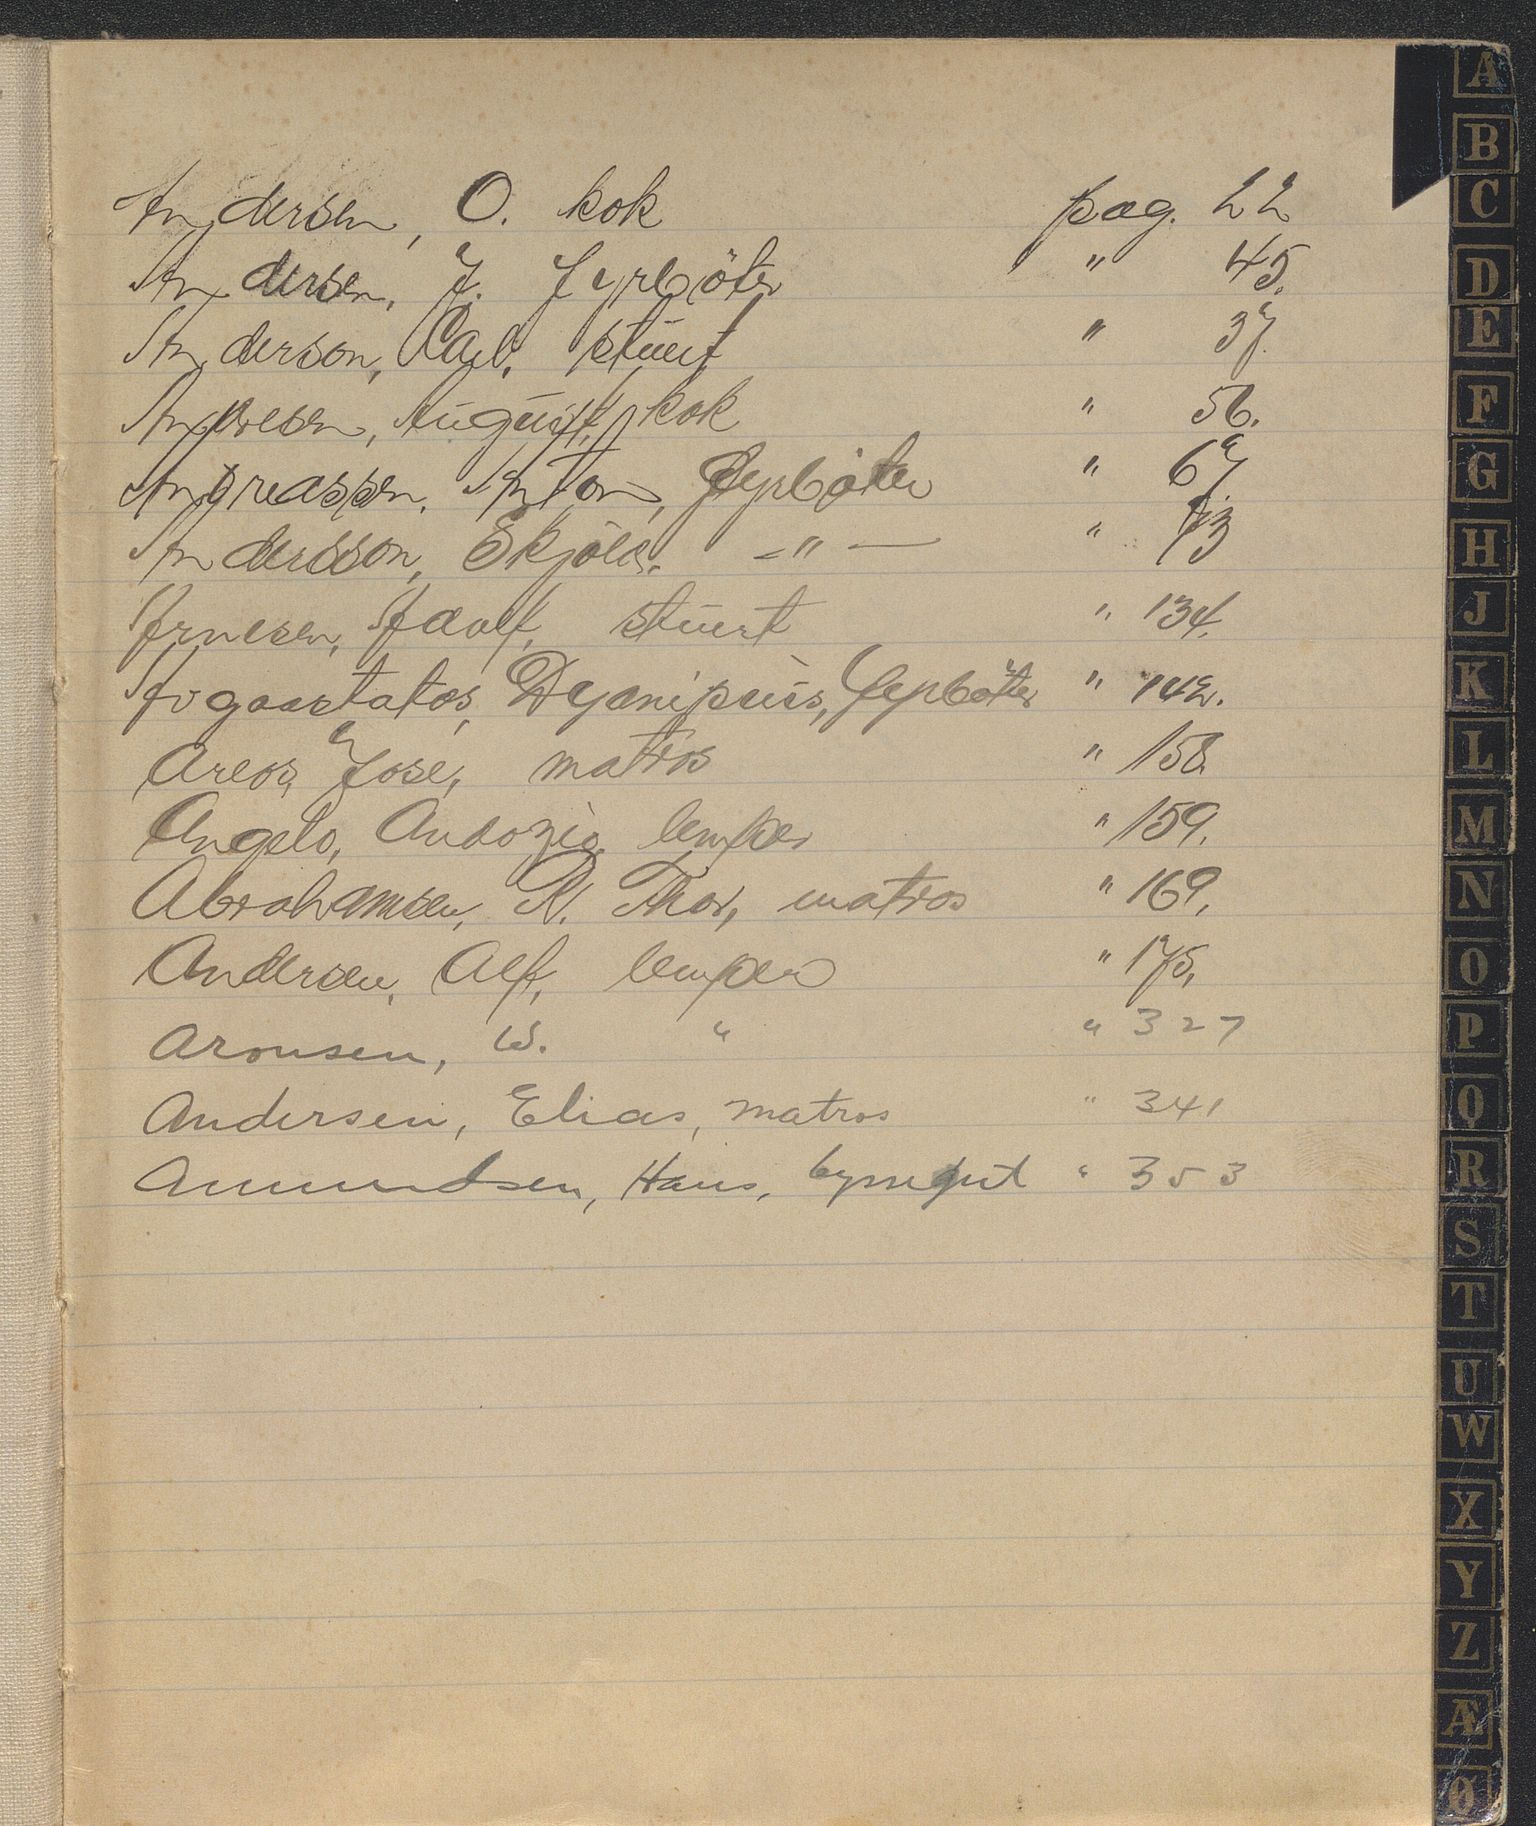 Andersen, O. kok pag. 22
Andersen, J. Fyrböter " 45.
Anderson, Carl, stuert " 37.
Andresen, August, kok " 56.
Andreassen, Anton, Fyrböter " 67
Andersson, Skjöld. -"- " 73
Arnesen, Adolf, stuert " 134.
Avgoustatos, Fyrböter " 142.
Areos, Jose, matros " 158.
Angelo, Andozio, lemper " 159.
Abrahamsen, R. Thor, matros " 169.
Andersen, Alf, lemper " 175.
Aronsen, W. " " 327
Andersen, Elias, matros " 341
Amundsen, Hans, byssegut " 353
A
B
C
D
E
F
G
H
J
K
L
M
N
O
P
Q
R
S
T
U
W
X
Y
Z
Æ
Ø